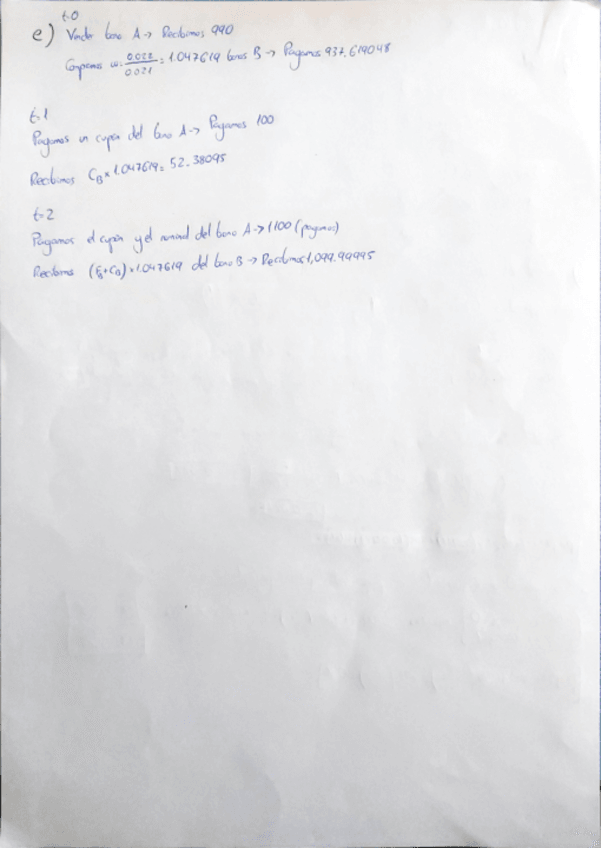 t=0
e) Vender bono A → Recibimos 990
Compramos w= 0.022/0.021 = 1.047619 bonos B → Pagamos 937.619048
t=1
Pagamos un cupón del bono A → Pagamos 100
Recibimos C_B × 1.047619 = 52.38095
t=2
Pagamos el cupón y el nominal del bono A → 1100 (pagamos)
Recibimos (F_B+C_B) × 1.047619 del bono B → Recibimos 1,099.99995